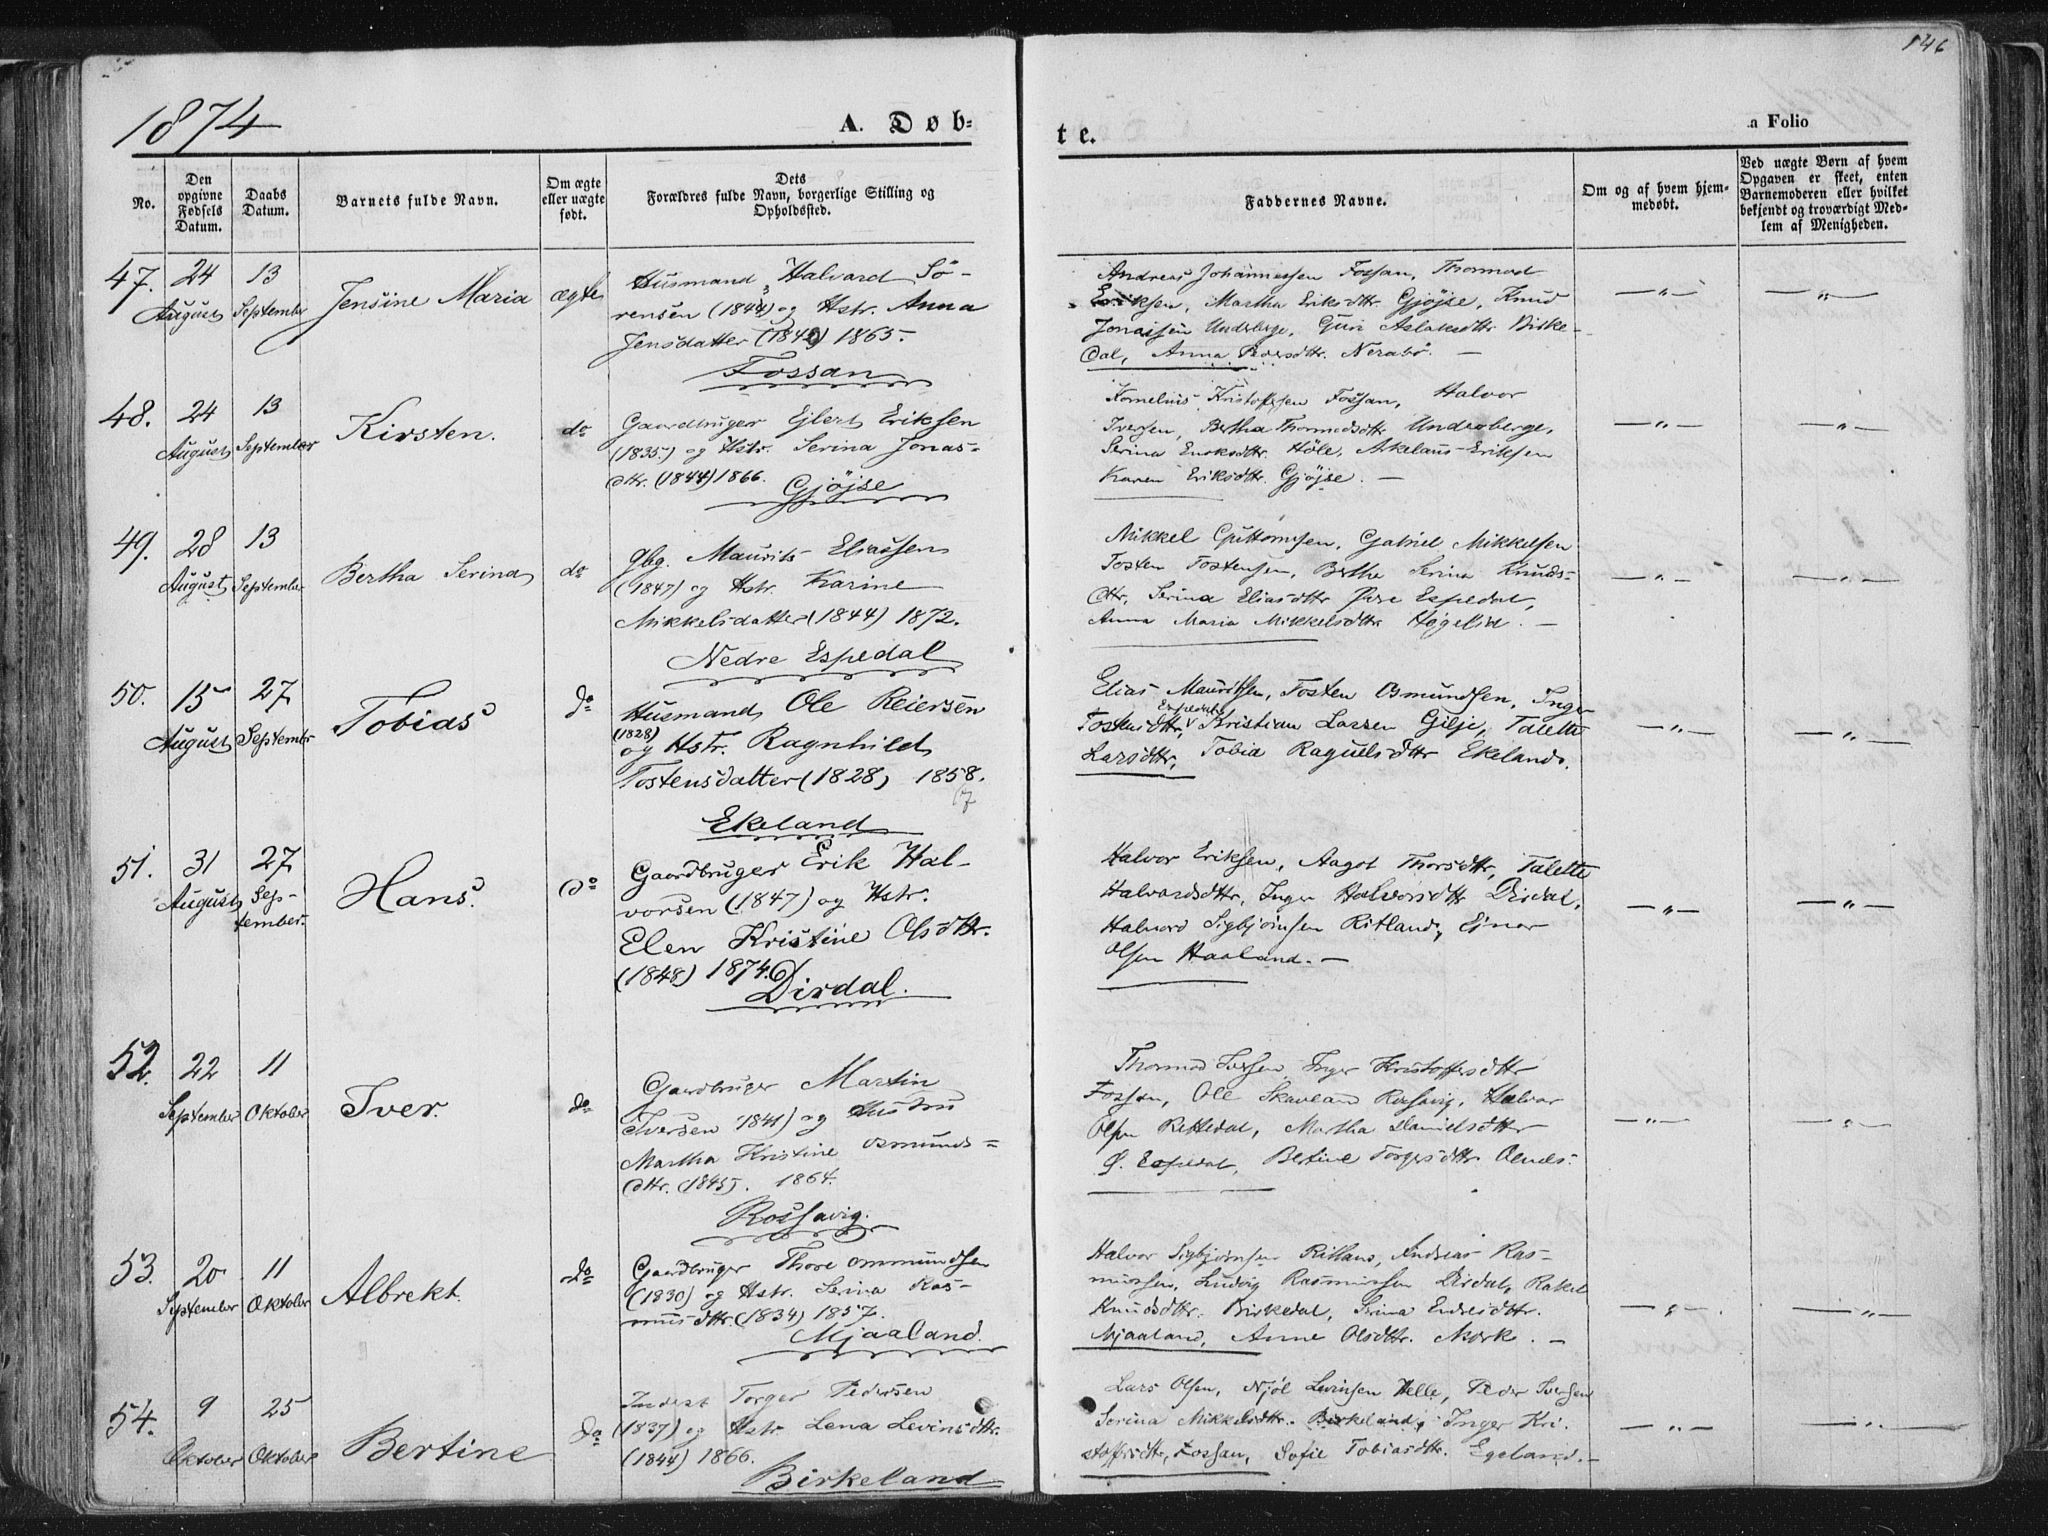 146
1874
A. Døb-
te.
a Folio
No.
Den opgivne Fødsels Datum.
Daabs Datum.
Barnets fulde Navn.
Om ægte eller uægte født.
Dets Forældres fulde Navn, borgerlige Stilling og Opholdssted.
Faddernes Navne.
Om og af hvem hjemmedøbt.
Ved uægte Børn af hvem Opgaven er skeet, enten Barnemoderen eller hvilket bekjendt og troværdigt Medlem af Menigheden.
47.
24 August
13 September
Jensine Maria
ægte
Husmand Halvard Sö-
rensen (1844) og Hstr. Anna
Jensdatter 1865.
Fossan
Andreas Johannessen Fossan, Thormod
Eriksen, Martha Eriksdttr. Gjöjse, Knud
Jonassen Underberge, Guri Aslaksdttr Birke-
dal, Anna Pedersdttr. Nerabö. —
— " —
— " —
48.
24 August
13 September
Kirsten.
do
Gaardbruger Ejlert Eriksen
(1835) og Hstr. Serina Jonas-
dttr. (1844) 1866.
Gjöjse
Kornelius Kristoffersen Fossan, Halvor
Iversen, Bertha Thormodsdttr Underberge,
Serina Höle, Eriksen
Karen Eriksdttr. Gjöjse. —
— " —
— " —
49.
28 August
13 September
Bertha Serina
do
Gbg. Maurits Eliassen
(1847) og Hstr. Karine
Mikkelsdatter (1844) 1872.
Nedre Espedal
Mikkel Guttormsen, Gabriel Mikkelsen
Tosten Tostensen, Bertha Serina Knuds-
dttr, Serina Eliasdttr Övre Espedal,
Anna Maria Mikkelsdttr Högelid. —
— " —
— " —
50.
15 August
27 September
Tobias
do
Husmand Ole Reiersen
(1828)
og Hstr. Ragnhild
Tostensdatter (1828) 1858.
7
Ekeland
Elias Mauritsen, Tosten Osmundsen, Inger
Espedal
Tostensdttr, Kristian Larsen Gilje, Talette
Larsdttr, Tobia Raguelsdttr Ekeland.
— " —
— " —
51.
31 August
27 Sep-
tember.
Hans.
do
Gaardbruger Erik Hal-
vorsen (1847) og Hstr.
Elen Kristine Olsdttr.
(1848) 1874.
Dirdal.
Halvor Eriksen, Aagot Thorsdttr, Talette
Halvardsdttr, Inger Halvorsdttr Dirdal,
Halvord Sigbjörnsen Ritland, Ejnar
Olsen Haaland. —
— " —
— " —
52.
22 September
11 Oktober
Iver.
do
Gaardbruger Martin
Iversen 1841) og Hustru
Martha Kristine Osmunds-
dttr. (1845). 1864.
Rossavig.
Thormod Iversen, Inger Kristoffersdttr
Fossan, Ole Skavland Rossavig, Halvor
Olsen Rettedal, Martha Danielsdttr
Ö. Espedal, Bertine Torgersdttr
— " —
— " —
53.
20 September
11 Oktober
Albrekt.
do
Gaardbruger Thore Ommundsen
(1830) og Hstr. Serina Ras-
musdttr. (1834) 1857.
Mjaaland.
Halvor Sigbjörnsen Ritland, Andreas Ras-
mussen, Ludvig Rasmussen Dirdal, Rakel
Knudsdttr. Birkedal, Serina Endresdttr.
Mjaaland, Anne Olsdttr. Mork. —
— " —
— " —
54.
9 Oktober
25 Oktober
Bertine
do
Inderst Torger Pedersen
(1837) og Hstr. Lena Levinsdttr.
(1844) 1866.
Birkeland
Lars Olsen, Njöl Levinsen Helle, Peder Iversen
Serina Mikkelsdttr. Birkeland, Inger Kri-
stoffersdttr, Fossan, Sofie Tobiasdttr. Egeland. —
— " —
— " —